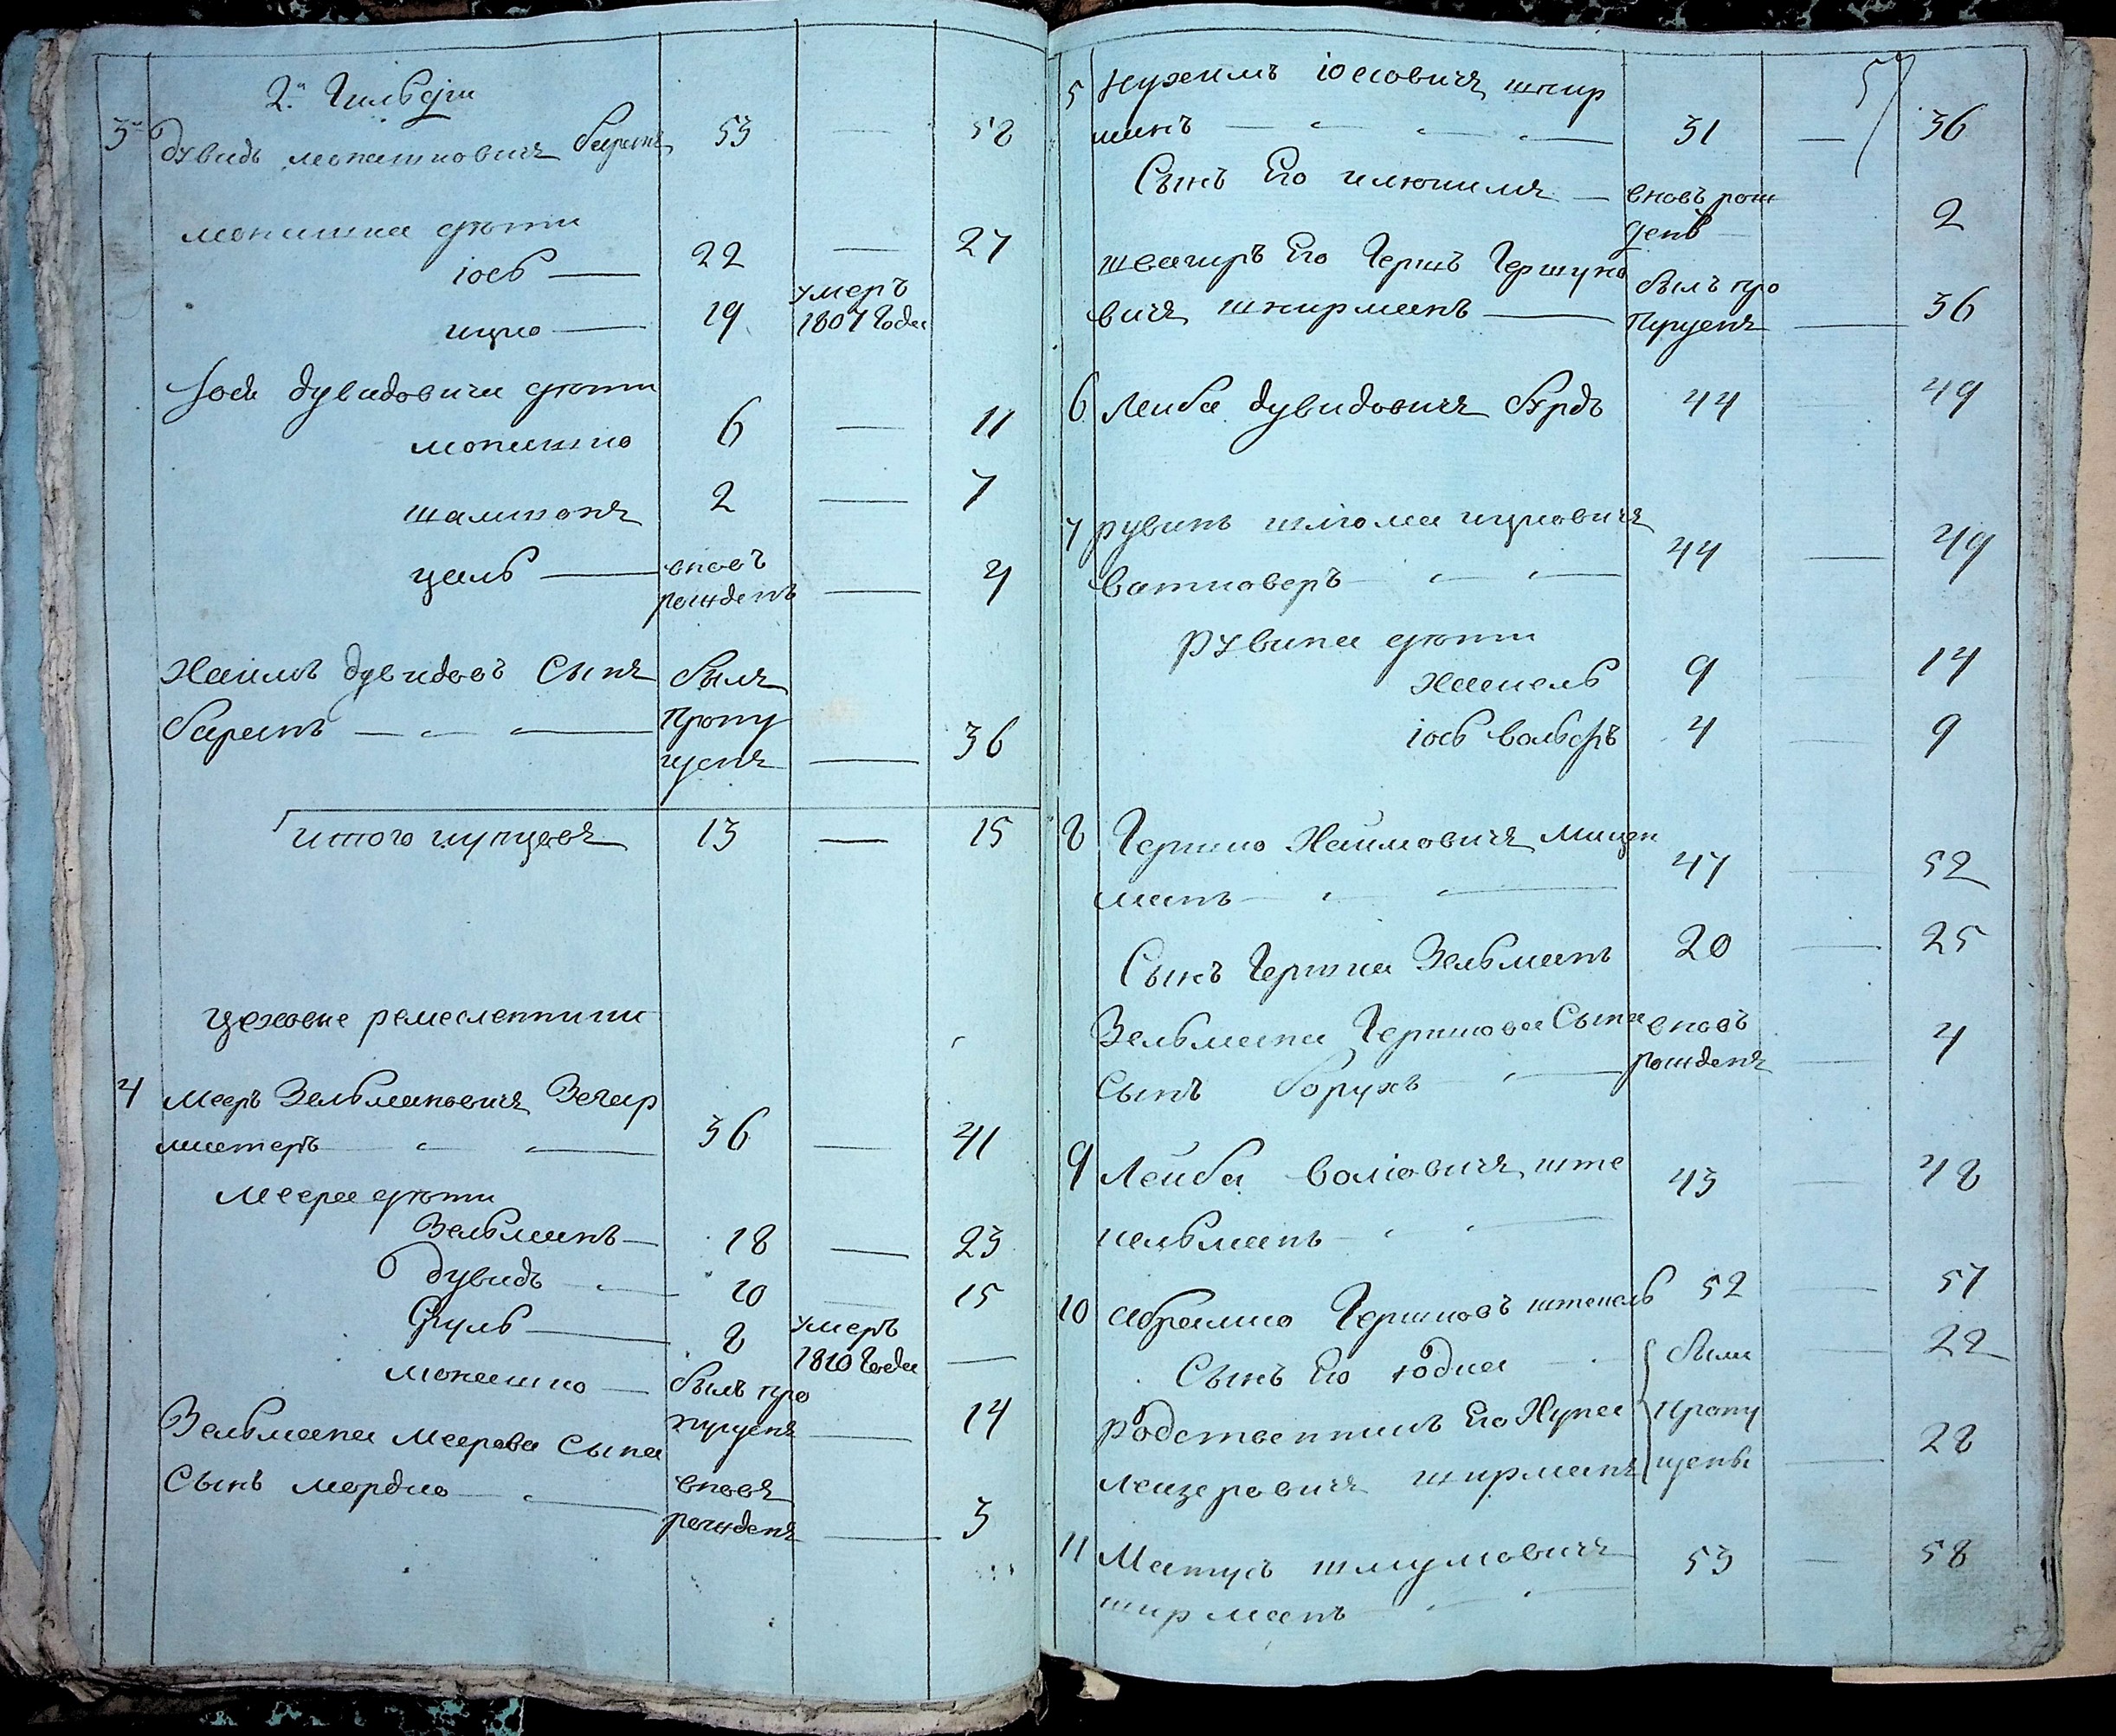 2й Гильдіи
3й Дувидъ мошковичъ баранъ 53 — 58
мошка дѣти
іось — 22 — 27
ицко — 19 умеръ 1807 Года
Іося дувидовича дѣти
мошко 6 — 11
шамшонъ 2 — 7
цаль — вновь рожденъ — 4
Хаимъ дувидовъ Сынъ былъ
баранъ — — пропущенъ — 36
итого купцовъ 13 — 15
цеховые ремесленники
4 Мееръ Зельмановичъ Зегар
мистеръ — 36 — 41
Меера дѣти
Зельманъ — 18 — 23
дувидъ — 10 — 15
Сруль — 8 умеръ 1810 Года —
мошко — былъ пропущенъ — 14
Зельмана Меерова Сына
Сынъ мордко — вновь рожденъ — 3
57
5 Нухимъ іосіовичъ шкир
манъ — 31 — 36
Сынъ Его — вновь рожденъ 2
швагиръ Его Гершъ Гершуно
вичъ шкирманъ — былъ пропущенъ — 36
6 Лейба дувидовичъ бурдъ 44 — 49
7 рувинъ шлома ицковичъ
ватмаверъ — 44 — 49
Рувина дѣти
Хаскель 9 — 14
іось вольфъ 4 — 9
8 Гершко Хаимовичъ
манъ — 47 — 52
Сынъ Гершка Зельманъ 20 — 25
Зельмана Гершкова Сына вновь
Сынъ борухъ — рожденъ — 4
9 Лейба волковичъ, ште
кельманъ — 43 — 48
10 абрамко Гершковъ штекель 52 — 57
Сынъ Его юдка — были — 22
Родственникъ Его Хуна пропу
лейзеровичъ ширманъ щены — 28
11 Матусъ шмулиовичъ
ширманъ 53 — 58